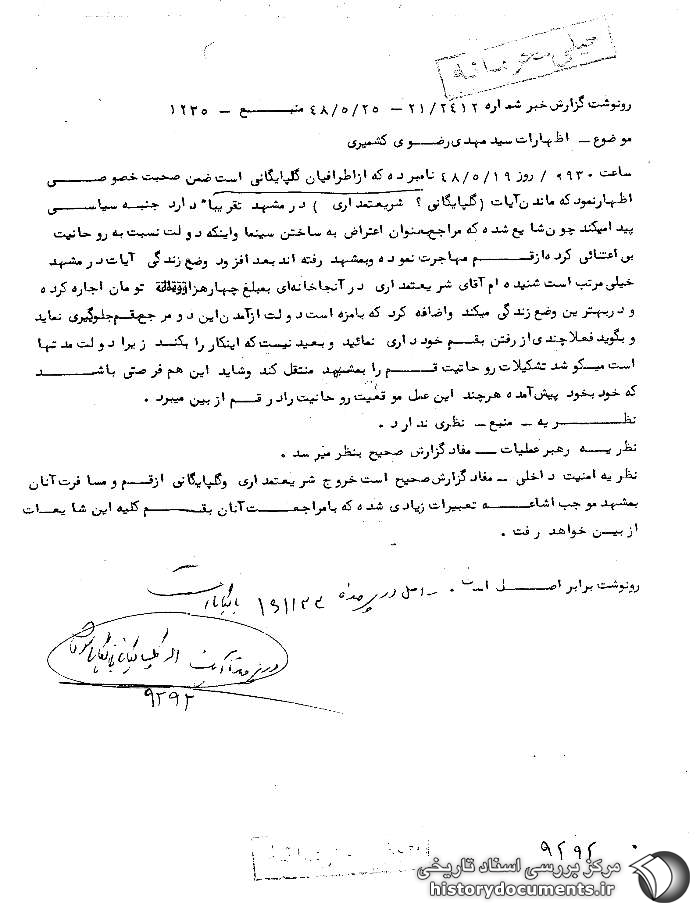 خیلی محرمانه
رونوشت گزارش خبر شماره ۲۱/۲۴۱۲ – ۴۸/۵/۲۵ منبع – ۱۲۳۵
موضوع – اظهارات سید مهدی رضوی کشمیری
ساعت ۰۹۳۰ / روز ۴۸/۵/۱۹ نامبرده که از اطرافیان گلپایگانی است ضمن صحبت خصوصی
اظهار نمود که ماندن آیات (گلپایگانی ؟ شریعتمداری ) در مشهد تقریبا" دارد جنبه سیاسی
پیدا میکند چون شایع شده که مراجع بعنوان اعتراض به ساختن سینما و اینکه دولت نسبت به روحانیت
بی اعتنائی کرده از قم مهاجرت نموده و بمشهد رفته اند بعد افزود وضع زندگی آیات در مشهد
خیلی مرتب است شنیده ام آقای شریعتمداری در آنجا خانه ای بمبلغ چهار هزار تومان اجاره کرده
و در بهترین وضع زندگی میکند واضافه کرد که بامزه است دولت از آمدن این دو مرجع بقم جلوگیری نماید
و بگوید فعلا چندی از رفتن بقم خود داری نمائید و بعید نیست که اینکار را بکند زیرا دولت مدتها
است میکوشد تشکیلات روحانیت قم را بمشهد منتقل کند وشاید این هم فرصتی باشد
که خود بخود پیش آمده هرچند این عمل موقعیت روحانیت را در قم از بین میبرد .
نظریه – منبع – نظری ندارد .
نظریه رهبر عملیات – مفاد گزارش صحیح بنظر میرسد .
نظریه امنیت داخلی – مفاد گزارش صحیح است خروج شریعتمداری وگلپایگانی از قم و مسافرت آنان
بمشهد موجب اشاعه تعبیرات زیادی شده که با مراجعت آنان بقم کلیه این شایعات
از بین خواهد رفت .
رونوشت برابر اصل است . اصل در پرونده
۹۲۹۲
۹۲۹۲
مرکز بررسی اسناد تاریخی
historydocuments.ir